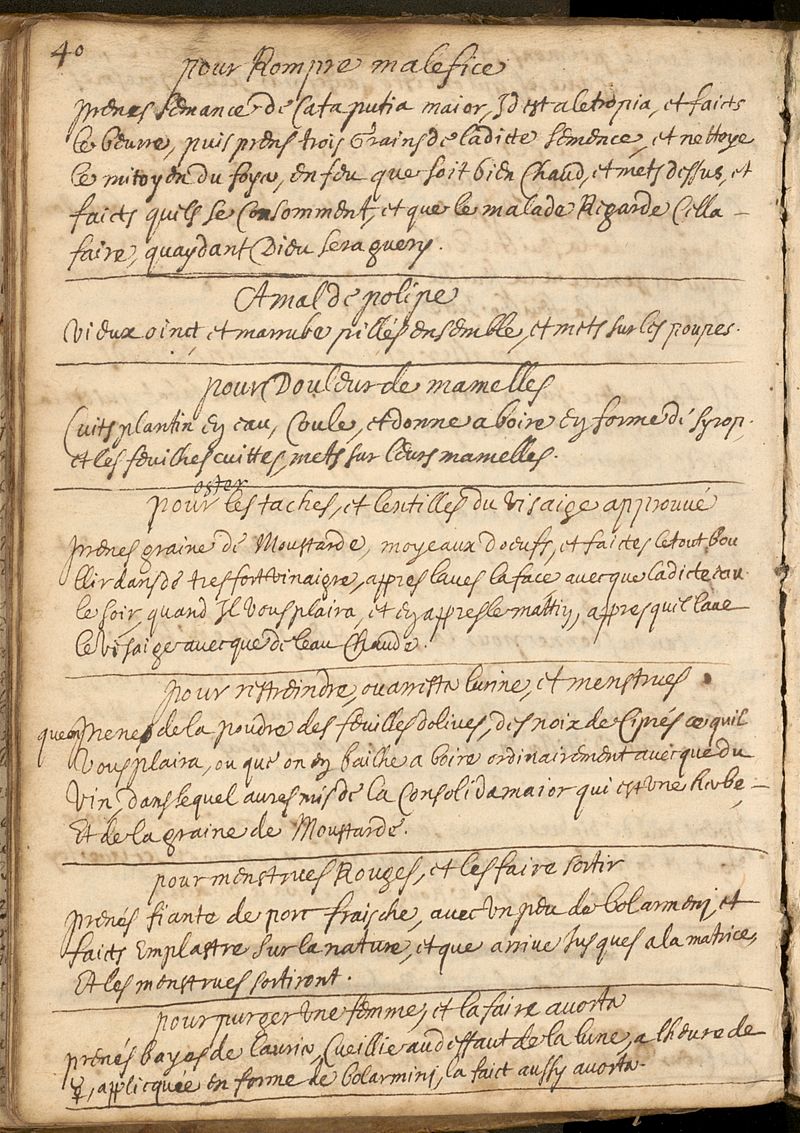 40
pour Rompre malefice
prenes semance de Cataputia maior, Id est aletropia, et faicts
le beurre, puis prens trois Grains de ladicte semence, et nettoye
le mitoyen du foyer, en feu que soit bien Chaud, et mets dessus, et
faicts quils se Consomment, et que le malade Regarde Cella
faire, quaydant Dieu sera guery.
A mal de polipe
Vieux oinct et marrube pillés ensemble, et mets sur les poupes.
pour Douleur de mamelles
Cuits plantin en eau, Coulé, et donne a boire en forme de Syrop,
et les feuilhes cuittes, mets sur leurs mamelles.
oster
pour les taches, et lentilles du visaige approuué
prenes graine de Moustarde, moyeaux doeufs, et faictes le tout bou
llir dans de tres fort vinaigre, appres laues la face auecque ladicte eau
le soir, quand Il vous plaira, et en appres le mattin, appres quil laue
le visaige auecque de leau Chaude.
pour restreindre, ou arresta lurine, et menstrues
prenés de la poudre des feuilles dolives, des noix de Ciprés ce quil
vous plaira, ou que on en bailhe a boire ordinairement auecque du
vin, dans lequel aures mis de la Consolida maior qui est une herbe,
Et de la graine de Moustarde.
pour menstrues Rouges, et les faire sortir
prenés fiante de porc fraische, avec un peu de bolarmenj, et
faicts Emplastre sur la nature, et que arrive Jusques a la matrice,
Et les menstrues sortiront.
pour purger une femme, et la faire avorta
prenés bayes de laurie, Cueillie au deffaut de la lune, a lheure de
♀, applicquée en forme de bolarminj, la faict aussy avorta.